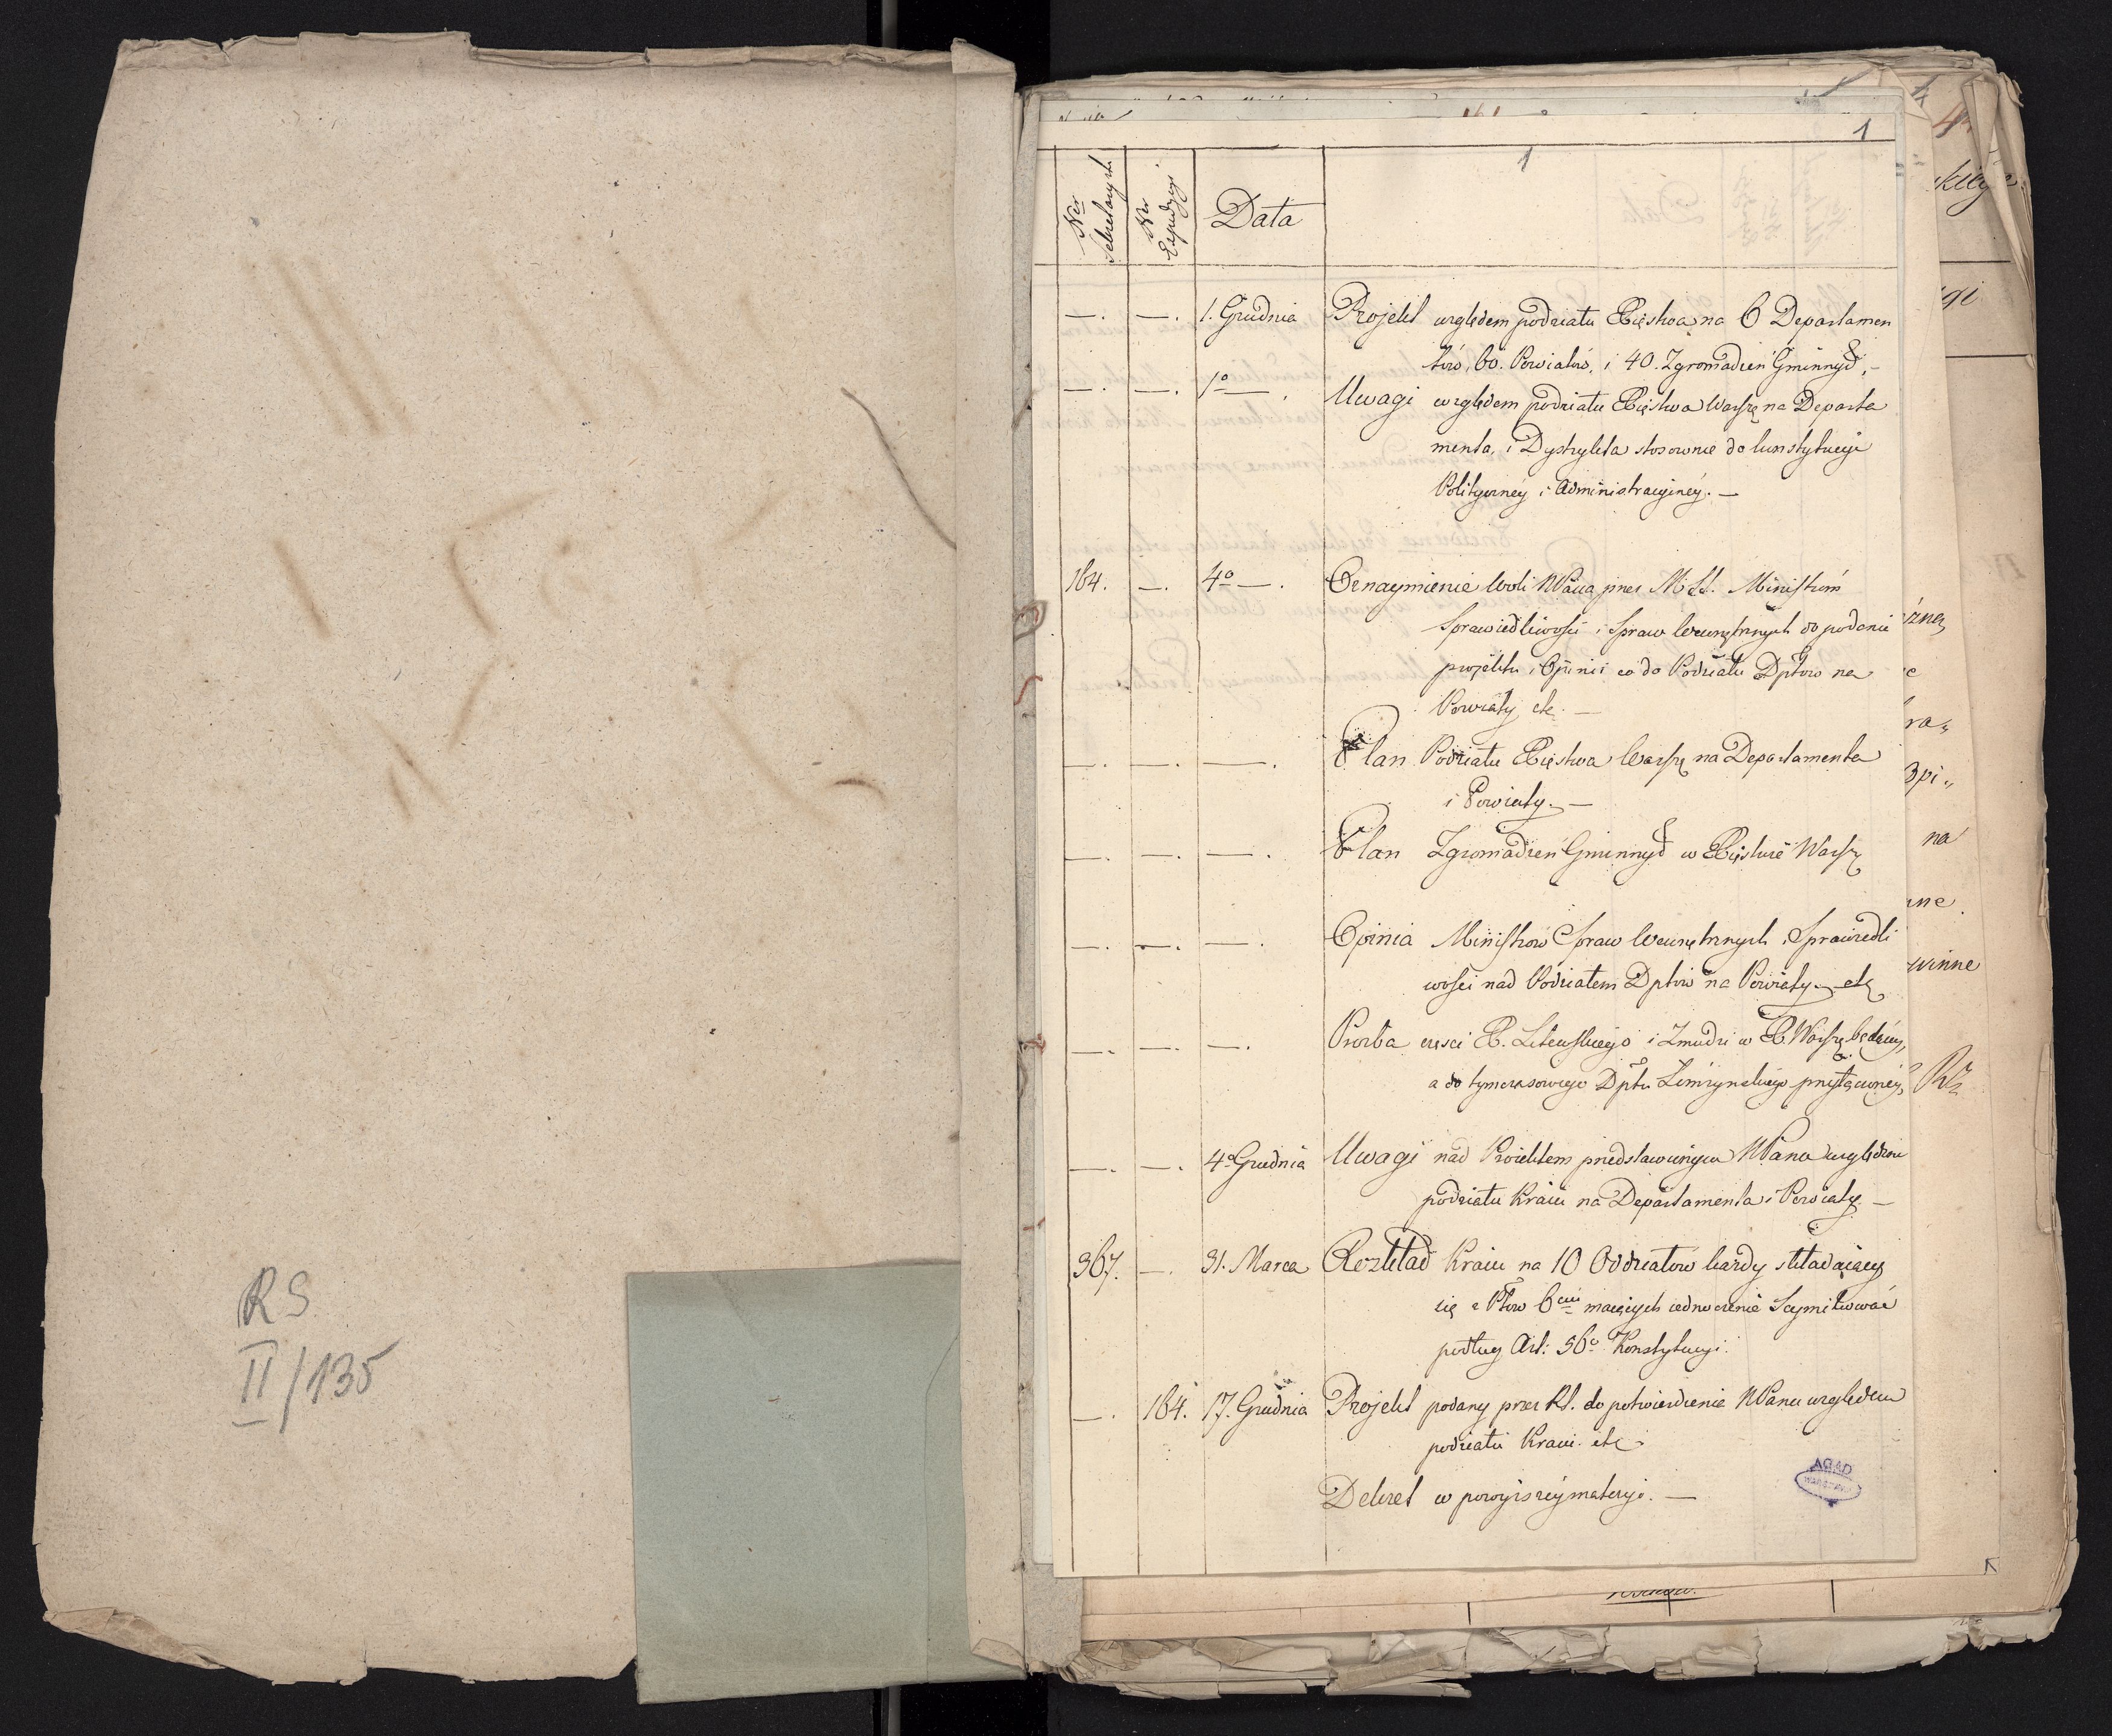 RS
II/135
1
1
Nro Sekretaryatu
Nr Expedycyi
Data
—. —. 1. Grudnia Projekt względem podziału Xięstwa na 6 Departamen
tów, 60. Powiatów, i 40. Zgromadzeń Gminnych. –
—. —. 1º — . Uwagi względem podziału Xięstwa Warsz na Departa
menta, i Dystrykta stosownie do konstytucyi
Polityczney i Administracyiney. —
164. —. 4º — . Oznaymienie woli NPana przez Ministrów
Sprawiedliwości i Spraw Wewnętrznych do podania
projektu i Opinii co do Podziału Dptów na
Powiaty etc. —
—. —. —. Plan Podziału Xięstwa Warsz na Departamenta
i Powiaty. —
—. —. —. Plan Zgromadzeń Gminnych w Xięstwie Warsz
—. —. —. Opinia Ministrów Spraw Wewnętrznych i Sprawiedli
wości nad Podziałem Dptów na Powiaty etc
—. —. —. Prozba części X. Litewskiego i Zmudzi w X. Warsz będącey,
a do tymczasowego Dptu Łomżynskiego przyłączoney,
—. —. 4º Grudnia Uwagi nad Proiektem przedstawionym NPanu względem
podziału Kraiu na Departamenta i Powiaty. —
367. —. 31. Marca Rozkład Kraiu na 10 Oddziałów każdy składaiący
się z Ptów 6ciu maiących iednocześnie Seymikować
podług Art: 36º Konstytucyi.
—. 164. 17. Grudnia Projekt podany przez RS. do potwierdzenia NPanu względem
podziału Kraiu etc
Dekret w powyższey materyi. —
AGAD
WARSZAWA
na
winne